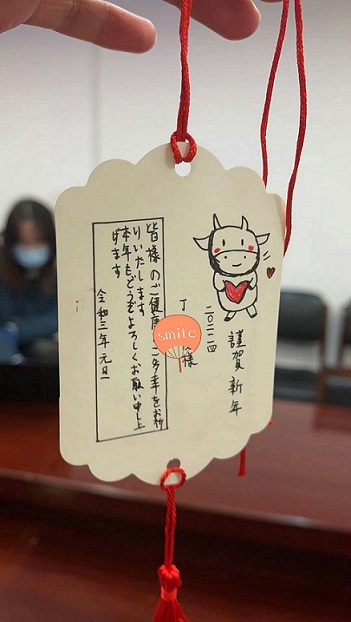 謹賀新年
丁
様
smile
皆様のご健康
ご多幸をお祈
りいたします
本年もどうぞよろしくお願い申上
げます
令和三年 元旦